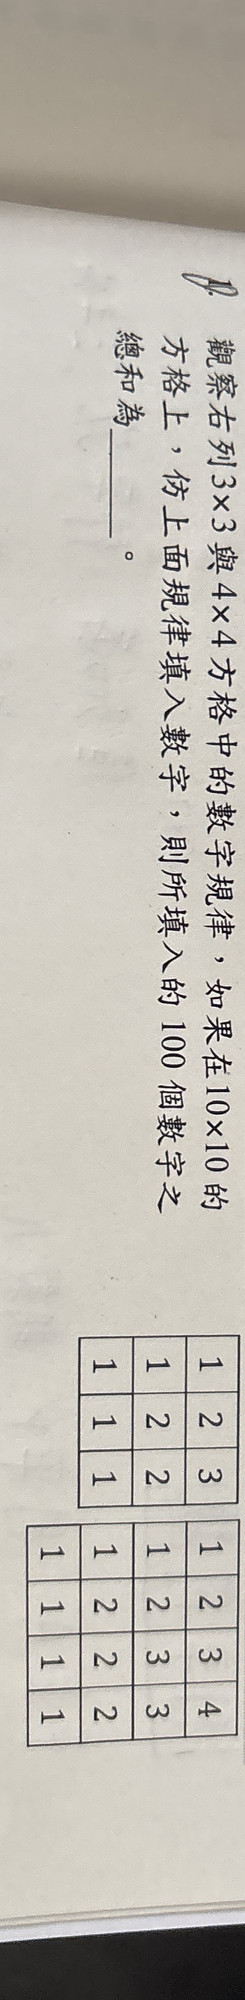 觀察右列3×3與4×4方格中的數字規律，如果在10×10的
方格上，仿上面規律填入數字，則所填入的100個數字之
總和為______。
1 2 3
1 2 2
1 1 1
1 2 3 4
1 2 3 3
1 2 2 2
1 1 1 1